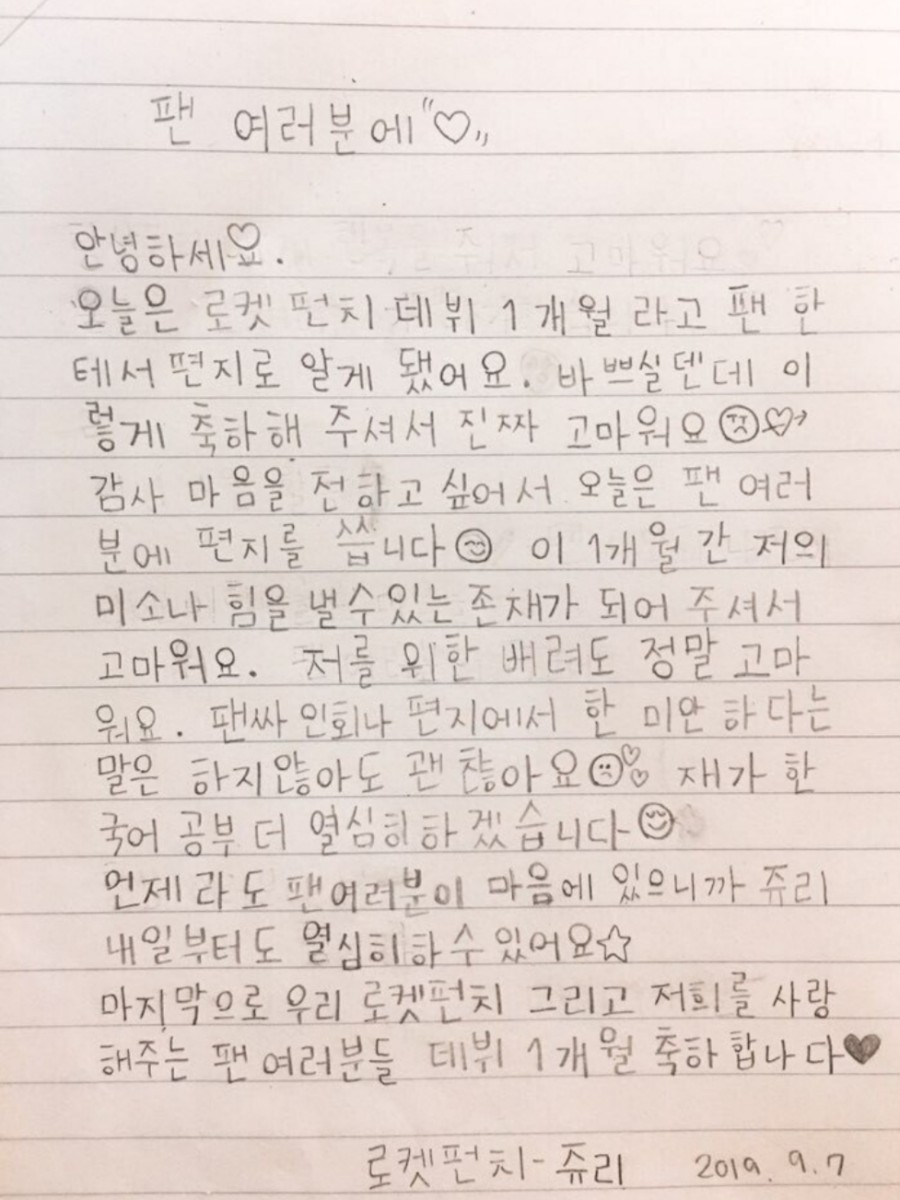 팬 여러분에"♡"
안녕하세요♡.
오늘은 로켓 펀치 데뷔 1개월 라고 팬 한
테서 편지로 알게 됐어요. 바쁘실덴데 이
렇게 축하해 주셔서 진짜 고마워요☹♡
감사 마음을 전하고 싶어서 오늘은 팬 여러
분에 편지를 씁니다☺ 이 1개월 간 저의
미소나 힘을 낼수있는 존재가 되어 주셔서
고마워요. 저를 위한 배려도 정말 고마
워요. 팬싸 인회나 편지에서 한 미안 하다는
말은 하지않아도 괜찮아요☹♡♡ 재가 한
국어 공부 더 열심히하겠습니다-☺
언제라도 팬여러분이 마음에 있으니까 쥬리
내일부터도 열심히하 수있어요☆
마지막으로 우리 로켓펀치 그리고 저희를 사랑
해주는 팬 여러분들 데뷔 1개월 축하합나다♥
로켓펀치-쥬리 2019. 9. 7